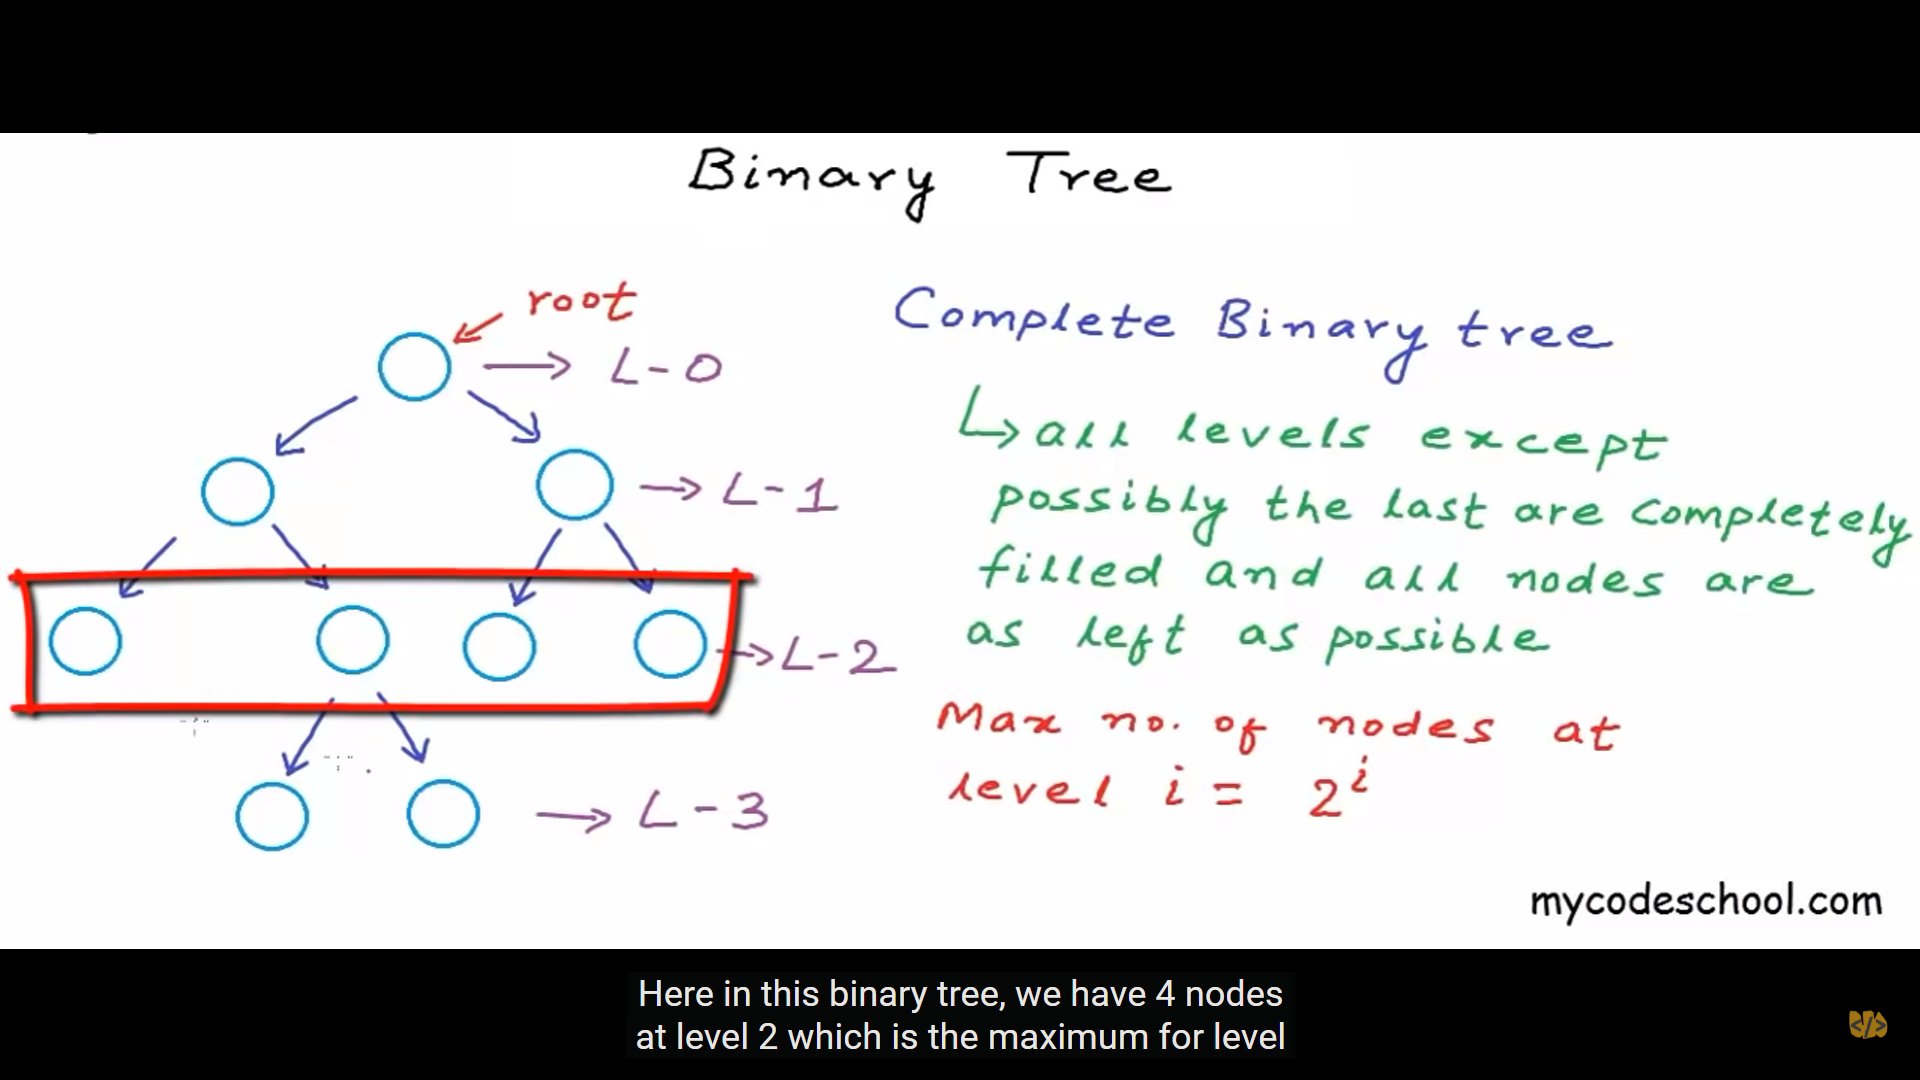 Binary Tree
root
L-0
L-1
L-2
L-3
Complete Binary tree
all levels except
possibly the last are completely
filled and all nodes are
as left as possible
Max no. of nodes at
level i = 2^i
mycodeschool.com
Here in this binary tree, we have 4 nodes
at level 2 which is the maximum for level